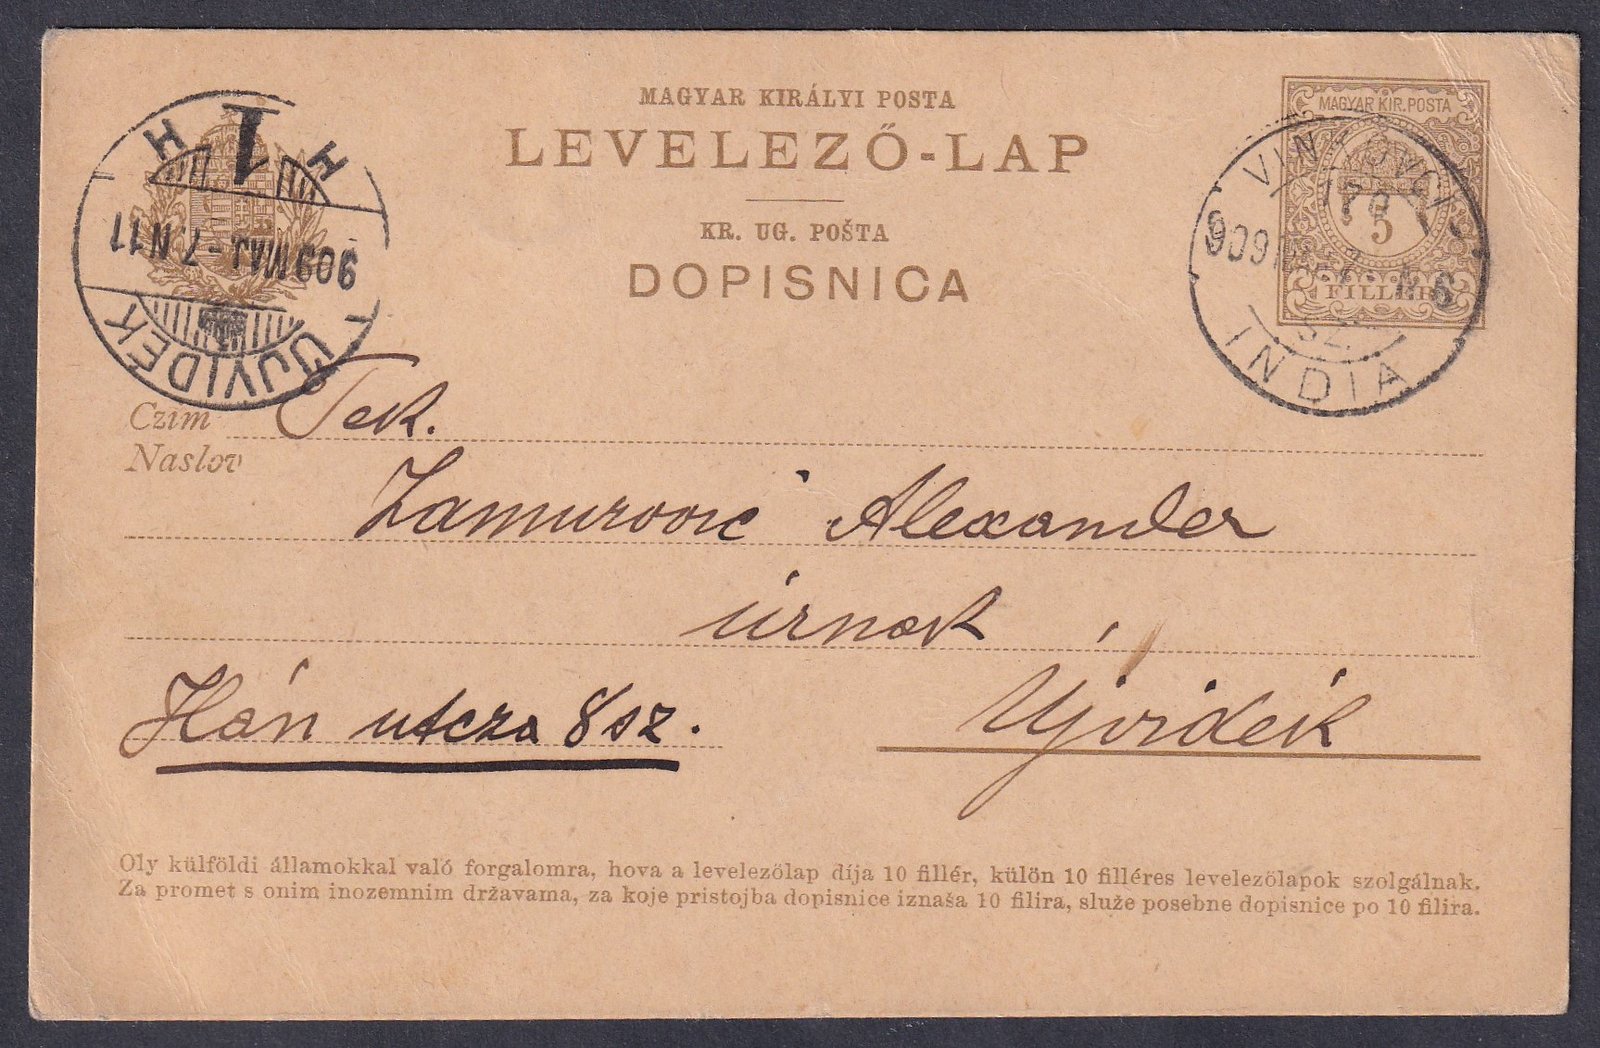 MAGYAR KIRÁLYI POSTA
LEVELEZŐ-LAP
KR. UG. POŠTA
DOPISNICA
MAGYAR KIR. POSTA
5
FILLÉR
H 1 H
909 MÁJ. -7. N 11
ÚJVIDÉK
VINKOVCI
909
INDIA
Czim
Naslov
Tek.
Zamurović Alexander
úrnak
Hán utcza 8 sz.
Újvidék
Oly külföldi államokkal való forgalomra, hova a levelezőlap díja 10 fillér, külön 10 filléres levelezőlapok szolgálnak.
Za promet s onim inozemnim državama, za koje pristojba dopisnice iznaša 10 filira, služe posebne dopisnice po 10 filira.